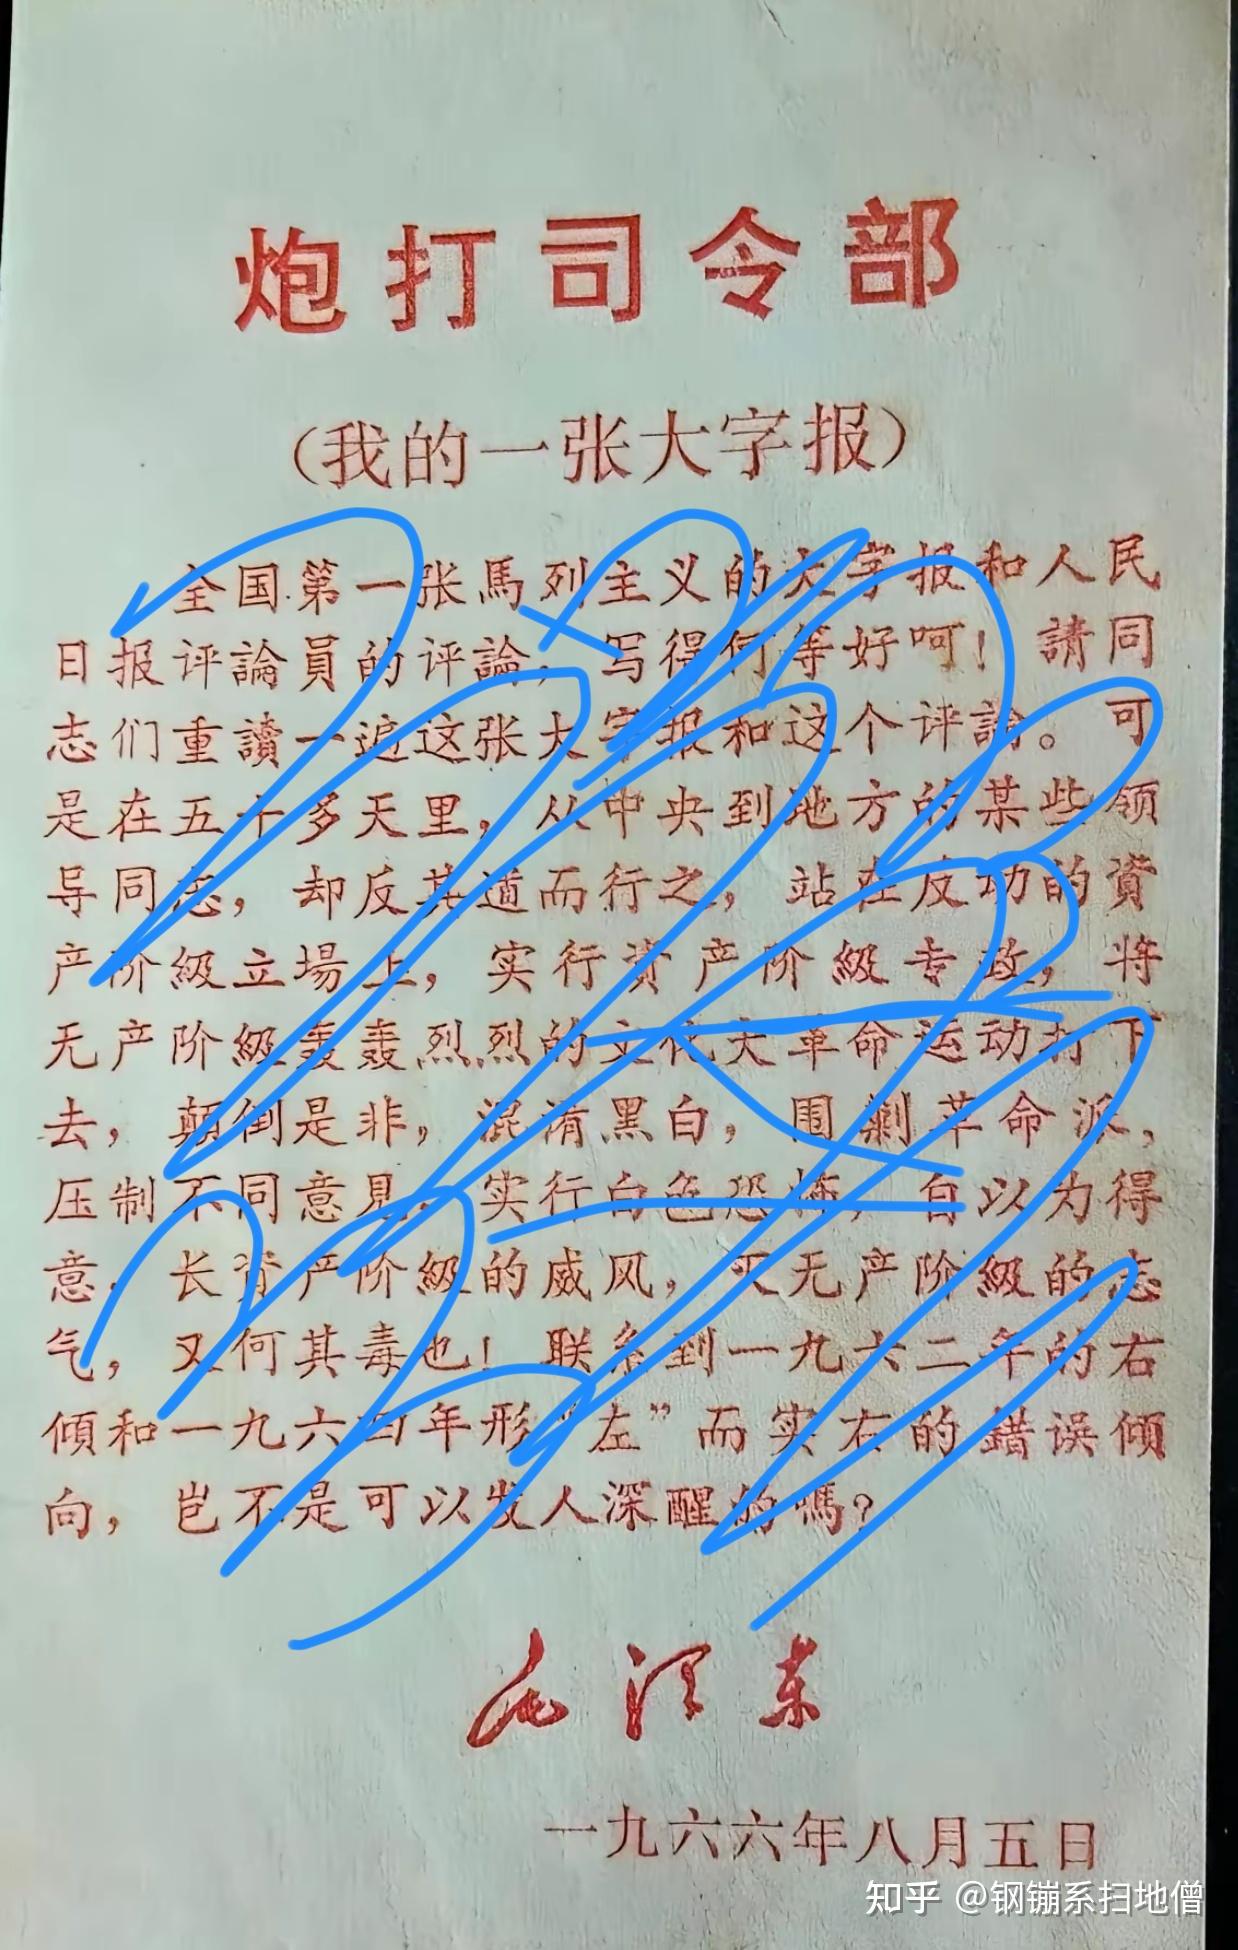 炮打司令部
（我的一张大字报）
全国第一张馬列主义的大字报和人民
日报评論員的评論，写得何等好呵！請同
志们重讀一遍这张大字报和这个评論。可
是在五十多天里，从中央到地方的某些领
导同志，却反其道而行之，站在反动的資
产阶級立場上，实行資产阶級专政，将
无产阶級轰轰烈烈的文化大革命运动打下
去，颠倒是非，混淆黑白，围剿革命派，
压制不同意見，实行白色恐怖，自以为得
意，长資产阶級的威风，灭无产阶級的志
气，又何其毒也！联系到一九六二年的右
倾和一九六四年形“左”而实右的錯误倾
向，岂不是可以发人深醒的嗎？
毛泽东
一九六六年八月五日
知乎 @钢镚系扫地僧